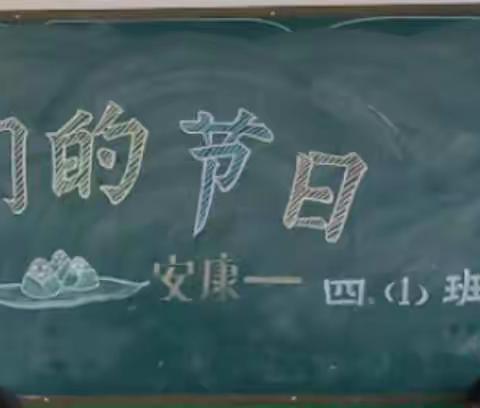 们的节日
安康一四.(1)班